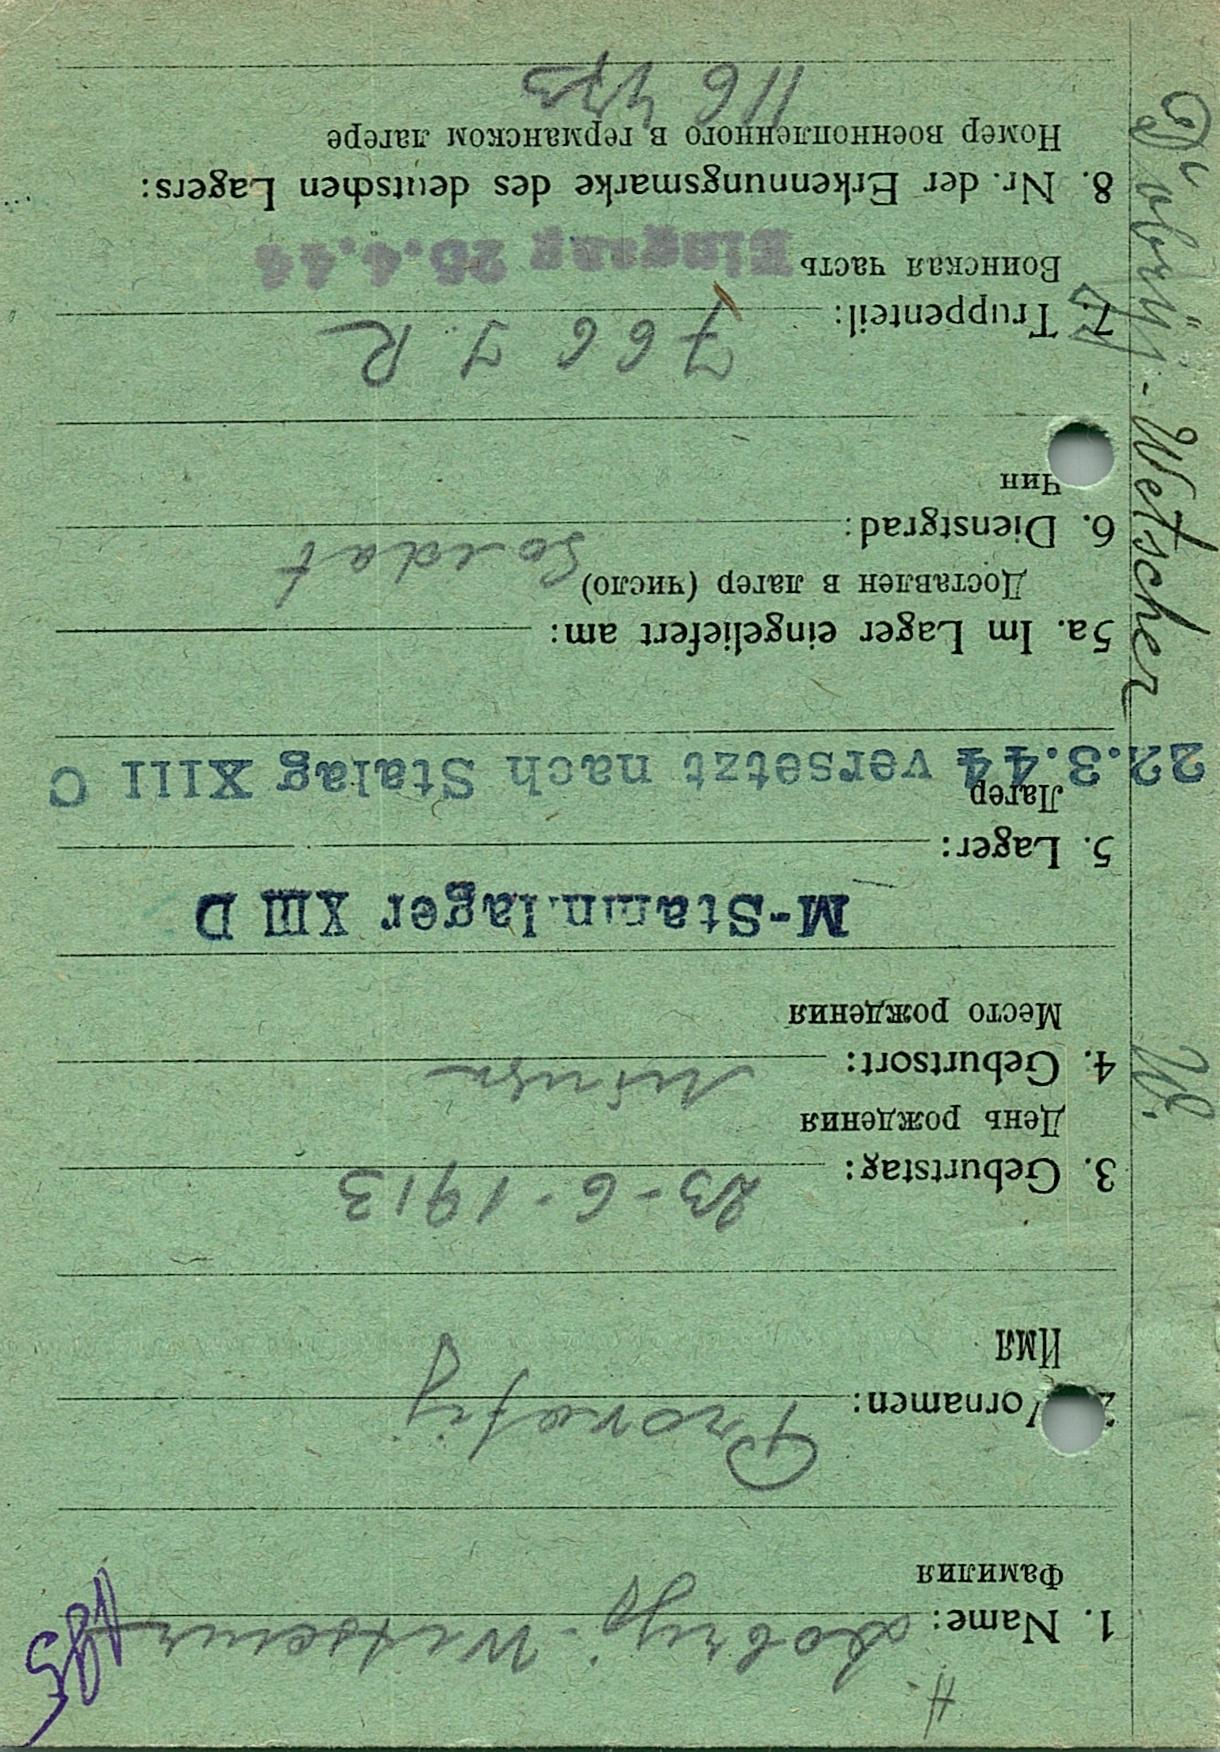 1. Name: Dobryj-Wetscher
Фамилия
2. Vornamen: Pronofij
Имя
3. Geburtstag: 23-6-1913
День рождения
4. Geburtsort:
Место рождения
M-Stamm.lager XIII D
5. Lager:
Лагерь
22.3.44 versetzt nach Stalag XIII C
5a. Im Lager eingeliefert am:
Доставлен в лагерь (число)
6. Dienstgrad: Soldat
Чин
7. Truppenteil: 766 J. R
Воинская часть Eingang 25.4.44
8. Nr. der Erkennungsmarke des deutschen Lagers:
Номер военнопленного в германском лагере
116 473
W. Dobryj-Wetscher